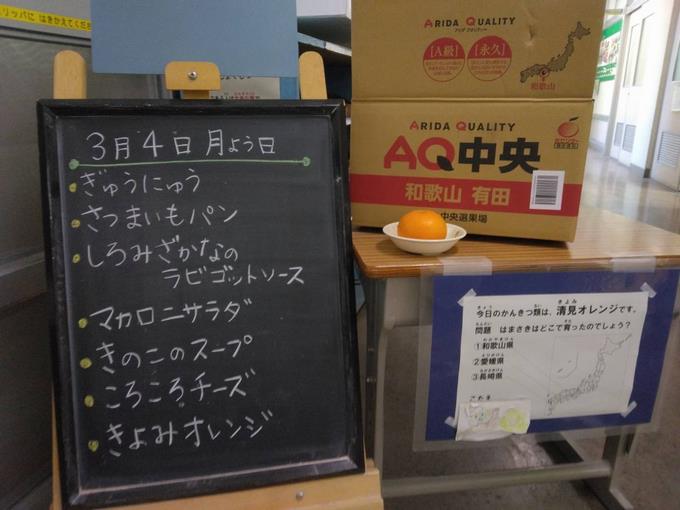 スリッパに はきかえてくだ
3月4日月よう日
ぎゅうにゅう
さつまいもパン
しろみざかなの
ラビゴットソース
マカロニサラダ
きのこのスープ
ころころチーズ
きよみオレンジ
ARIDA QUALITY
[A級]
[永久]
和歌山
ARIDA QUALITY
AQ中央
和歌山 有田
中央選果場
今日のかんきつ類は、清見オレンジです。
問題 はまさきはどこで育ったのでしょう?
①和歌山県
②愛媛県
③長崎県
こたえ